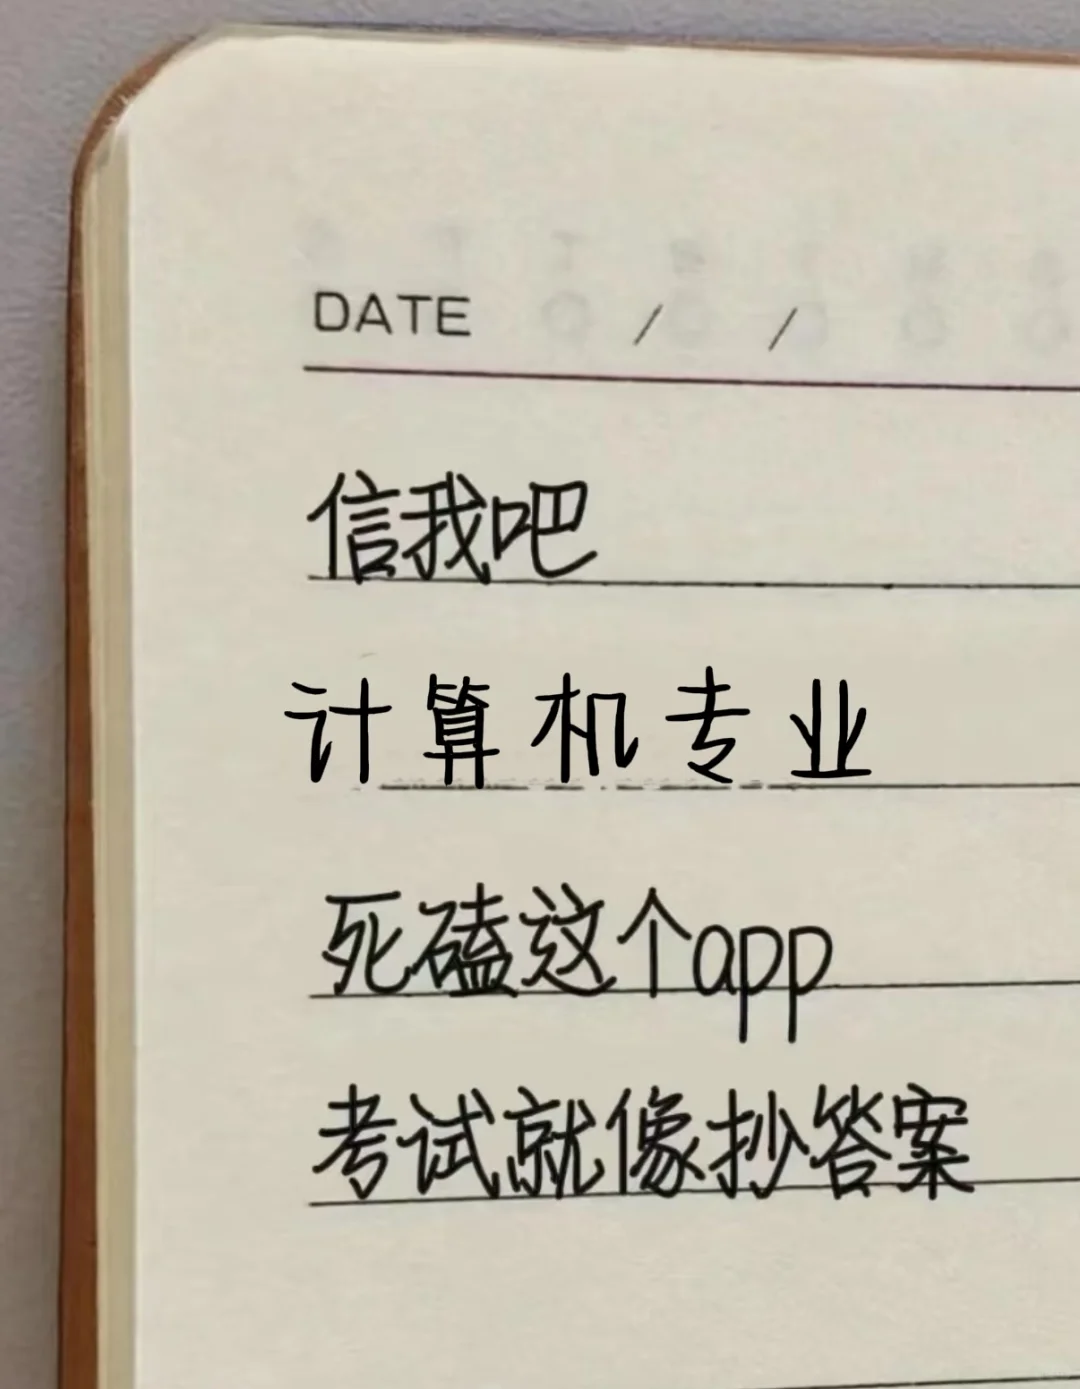 DATE / /
信我吧
计算机专业
死磕这个app
考试就像抄答案